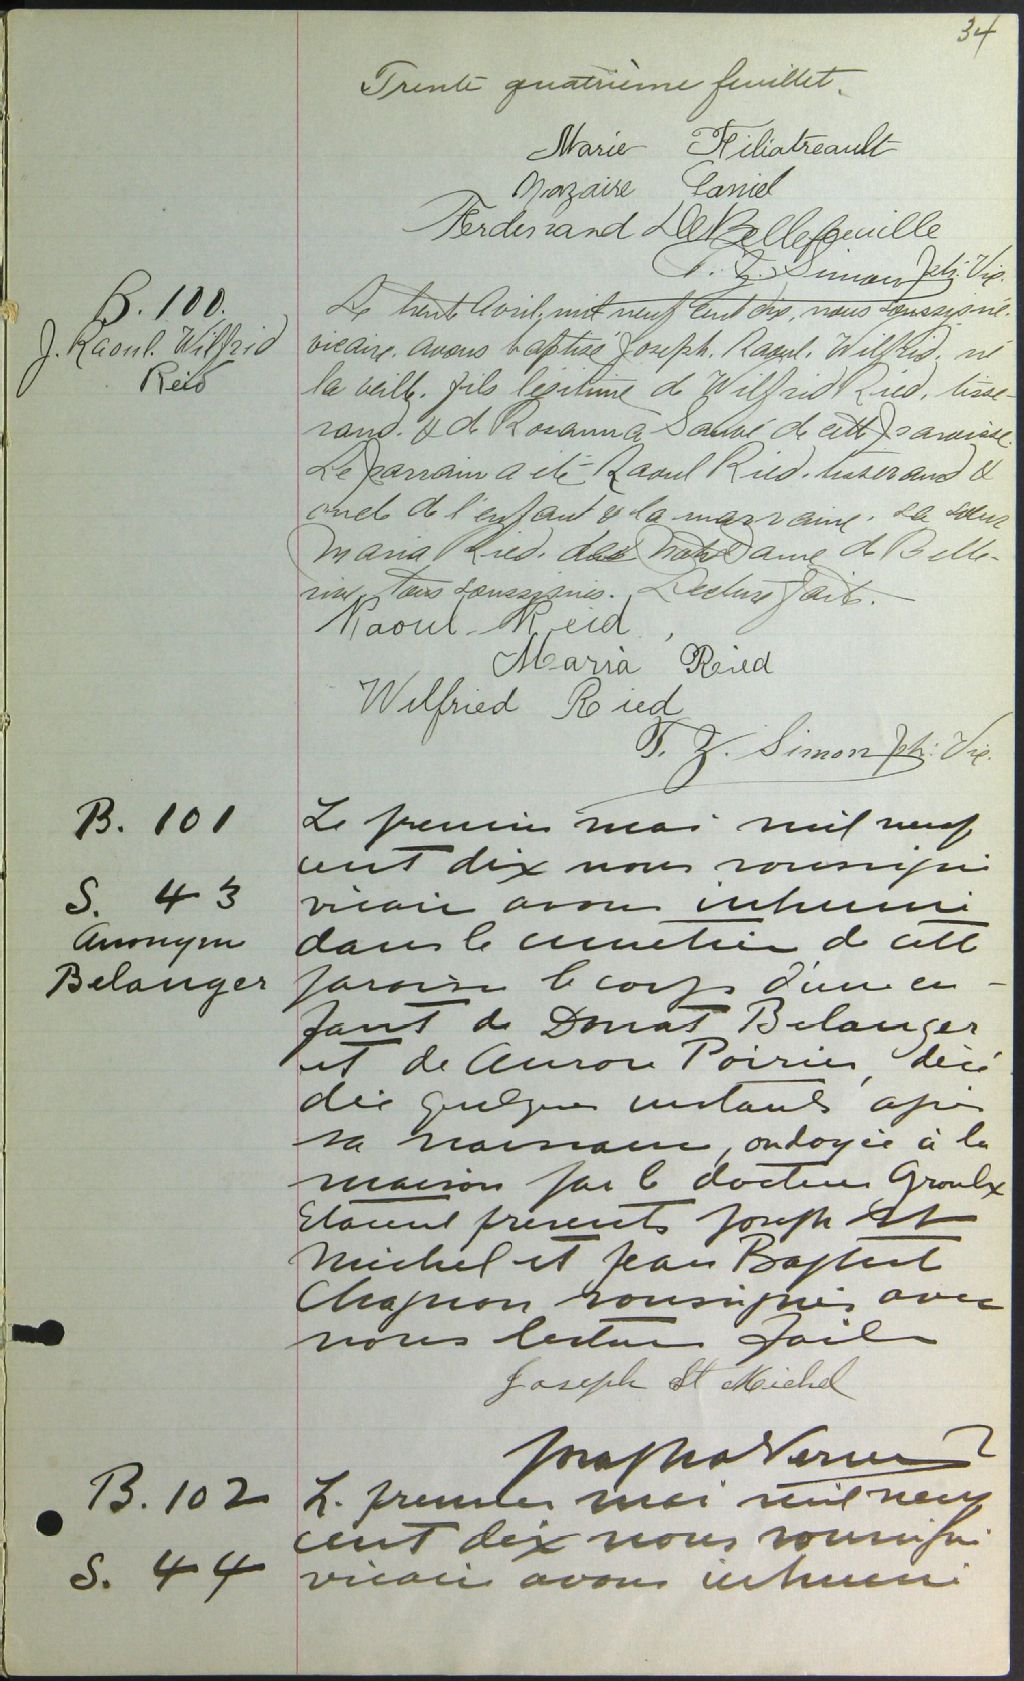 34
Trente quatrième feuillet.
Marie Filiatreault
Nazaire Daniel
Ferdinand DeBellefeuille
T. Z. Simon ptr. Vic.
B. 100.
J. Raoul. Wilfrid
Reid
Le trente Avril, mil neuf cent dix, nous soussigné
vicaire. avons baptisé Joseph. Raoul. Wilfrid. né
la veille. fils légitime de Wilfrid Ried. tisse-
rand. & de Rosanna Sauvé de cette paroisse.
Le parrain a été Raoul Ried. tisserand &
oncle de l'enfant & la marraine. sa sœur
Maria Ried. de Notre Dame de Belle-
rive, tous soussignés. Lecture faite.
Raoul Reid,
Maria Ried
Wilfried Ried
T. Z. Simon ptr: Vic.
B. 101
S. 43
Anonyme
Belanger
Le premier mai mil neuf
cent dix nous soussigné
vicaire avons inhumé
dans le cimetière de cette
paroisse le corps d'une en-
fant de Donat Belanger
et de Aurore Poirier, décé
dée quelques instants après
sa naissance, ondoyée à la
maison par le docteur Groulx
Etaient présents Joseph St
Michel et Jean Baptiste
Chagnon soussignés avec
nous lecture faite
Joseph St Michel
B. 102
S. 44
Le premier mai mil neuf
cent dix nous soussigné
vicaire avons inhumé